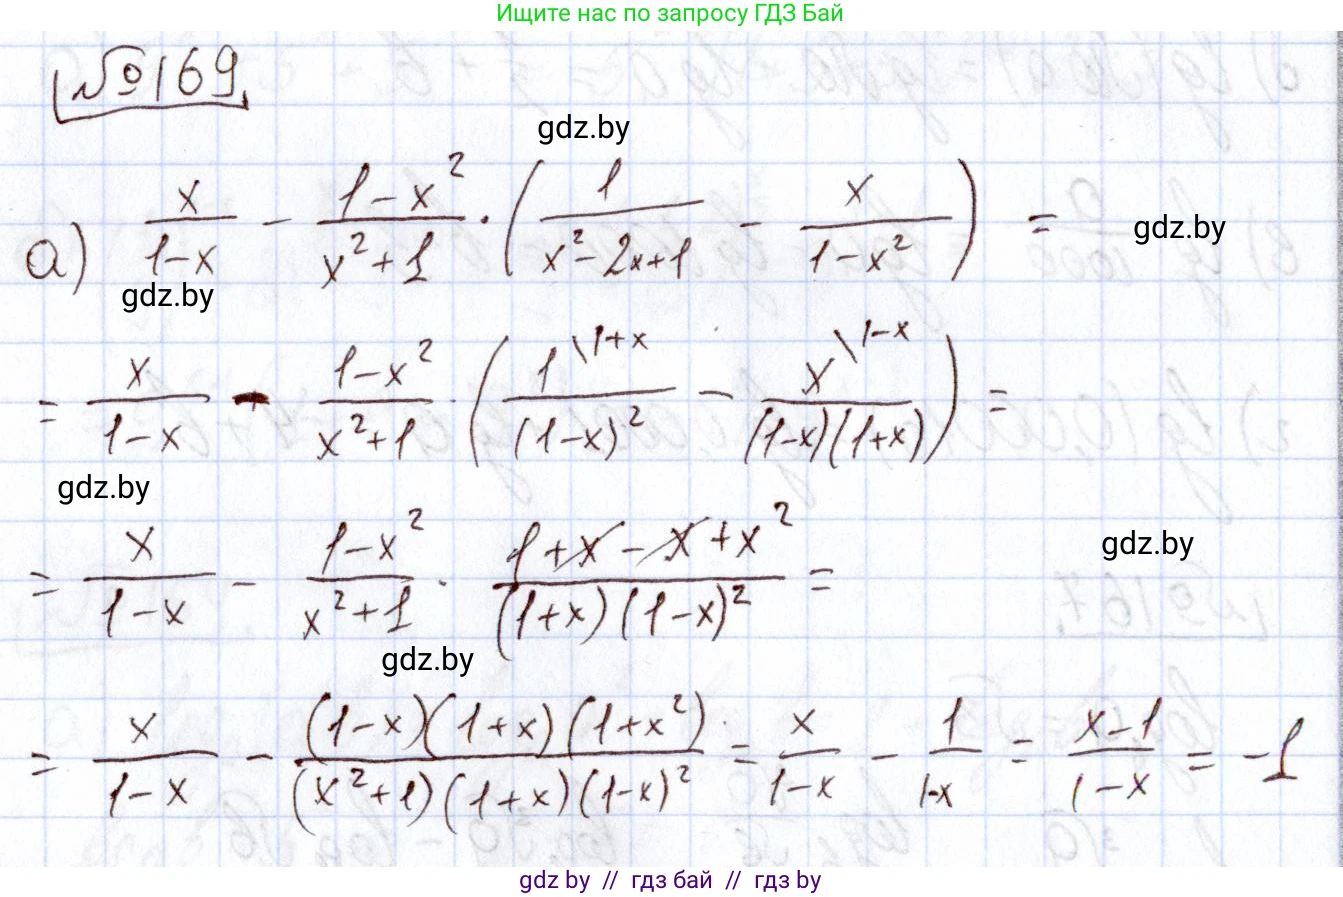 Ищите нас по запросу ГДЗ Бай
№169
gdz.by
а) x/(1-x) - (1-x²)/(x²+1) · (1/(x²-2x+1) - x/(1-x²)) =
gdz.by
gdz.by
= x/(1-x) - (1-x²)/(x²+1) · (1\1+x/(1-x)² - x\1-x/((1-x)(1+x))) =
gdz.by
= x/(1-x) - (1-x²)/(x²+1) · (1+x-x+x²)/((1+x)(1-x)²) =
gdz.by
gdz.by
= x/(1-x) - ((1-x)(1+x)(1+x²))/((x²+1)(1+x)(1-x)²) = x/(1-x) - 1/(1-x) = (x-1)/(1-x) = -1
gdz by // гдз бай // гдз by